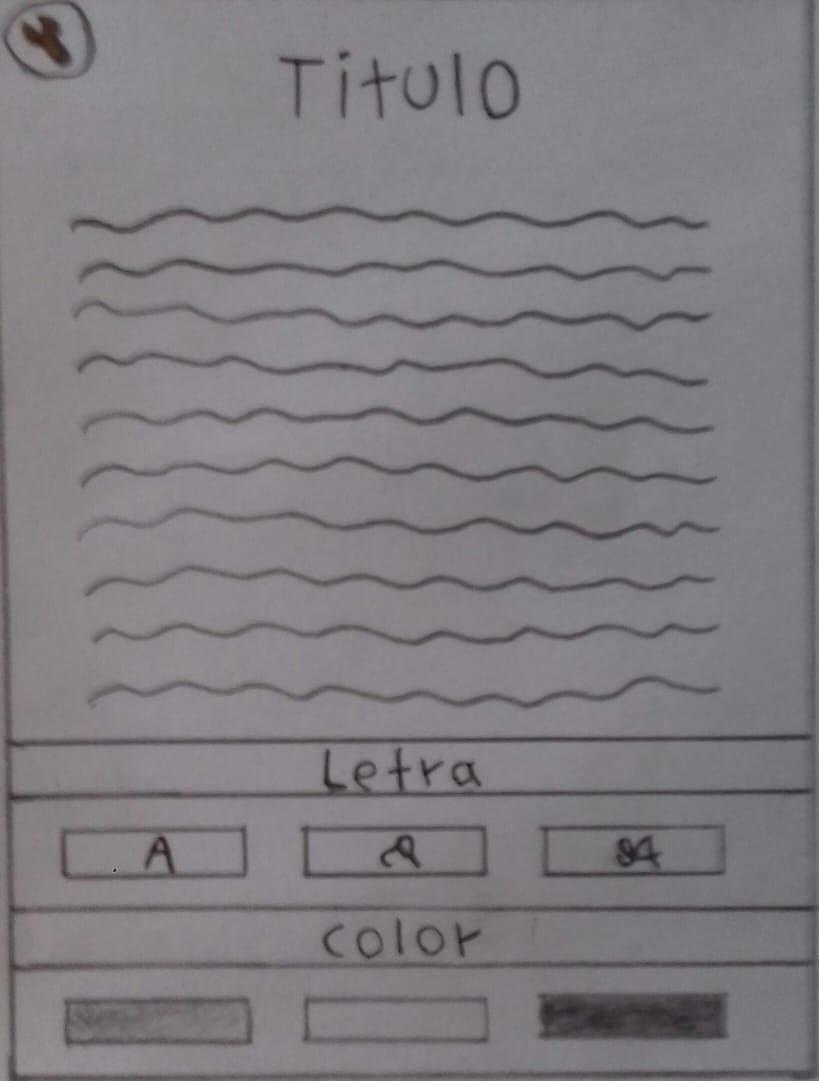 Titulo
Letra
A
color